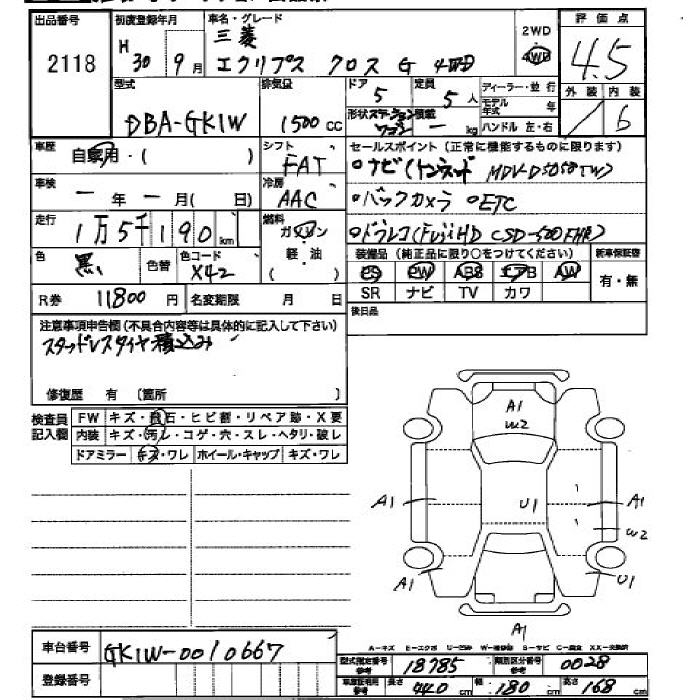 出品番号 初度登録年月 車名・グレード 2WD 評価点
2118 H 30 9月 三菱 エクリプス クロス G 4WD 4WD 4.5
型式 排気量 ドア 定員 ディーラー・並行 外装 内装
DBA-GK1W 1500cc 5 5人 モデル年式 年 / 6
形状 ステーションワゴン 積載 ー kg ハンドル 左・右
車歴 自家用・( ) シフト FAT セールスポイント(正常に機能するものに限ります)
○ナビ(トヨタ MDV-D505BTW)
車検 ー年ー月( 日) 冷房 AAC ○バックカメラ ○ETC
走行 1万5千190km 燃料 ガソリン・軽・油 ( ) ○ドラレコ(FujiHD CSD-500FHR)
色 黒 色替 色コード X42 装備品(純正品に限り○をつけてください) 新車保証書
PS PW ABS エアB AW 有・無
R券 11800円 名変期限 月 日 SR ナビ TV カワ
注意事項申告欄(不具合内容等は具体的に記入して下さい) 後日品
スタッドレスタイヤ積込み
修復歴 有 [箇所 ]
検査員記入欄 FW キズ・飛石・ヒビ割・リペア跡・X要
内装 キズ・汚レ・コゲ・穴・スレ・ヘタリ・破レ
ドアミラー キズ・ワレ ホイール・キャップ キズ・ワレ
A1
W2
A1 U1 A1
W2
A1 U1
A1
車台番号 GK1W-0010667
A-キズ E-エクボ U-凹み W-補修跡 S-サビ C-腐食 XX-交換済
型式指定番号 参考 18785 類別区分番号 参考 0028
登録番号 車庫証明用 参考 長さ 440cm 幅 180cm 高さ 168cm